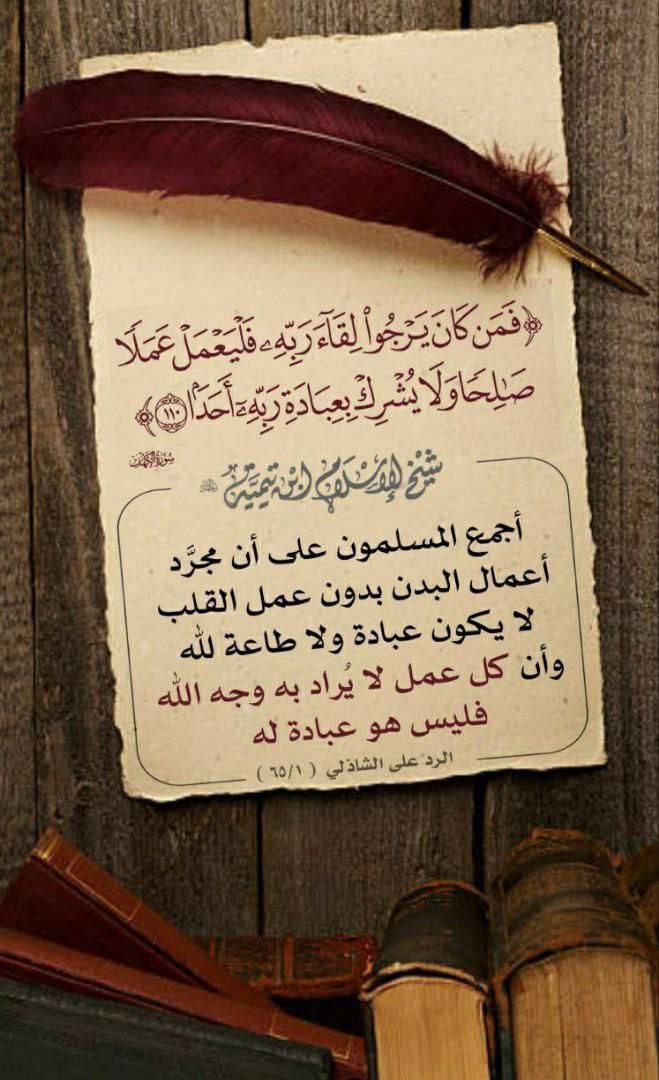 ﴿فَمَن كَانَ يَرْجُوا۟ لِقَآءَ رَبِّهِۦ فَلْيَعْمَلْ عَمَلًا
صَـٰلِحًا وَلَا يُشْرِكْ بِعِبَادَةِ رَبِّهِۦٓ أَحَدًۢا ۝١١٠﴾
سورة الكهف
شيخ الإسلام ابن تيمية
أجمع المسلمون على أن مجرَّد
أعمال البدن بدون عمل القلب
لا يكون عبادة ولا طاعة لله
وأن كل عمل لا يُراد به وجه الله
فليس هو عبادة له
الرد على الشاذلي ( ٦٥/١ )